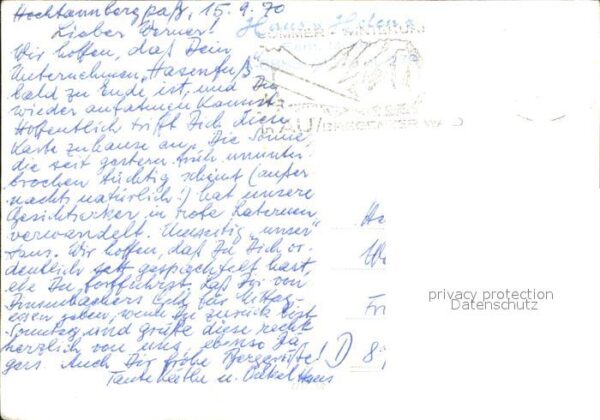 Hochtannbergpaß, 15.9.70
Lieber Werner! Hans u. Helene
Wir hoffen, daß Dein SOMMER-
Unternehmen „Hasenfuß"
bald zu Ende ist, und Du
wieder aufatmen kannst.
Hoffentlich trifft Dich diese
Karte zuhause an. Die Sonne
AU/BREGENZER WALD
die seit gestern früh ununter-
brochen tüchtig scheint (außer
nachts natürlich!) hat unsere
Gesichtserker in rote Laternen
verwandelt. Umseitig „unser"
Haus. Wir hoffen, daß Du Dich or-
dentlich satt gespachtelt hast,
ehe Du fortfährst, daß Dir von
Geld für Mittag-
essen geben, wenn Du zurück bist
Sonntag und grüße diese recht
herzlich von uns, ebenso
Auch Dir frohe Berggrüße!
Tante Käthe u. Onkel Hans
Fri
D 8
privacy protection
Datenschutz